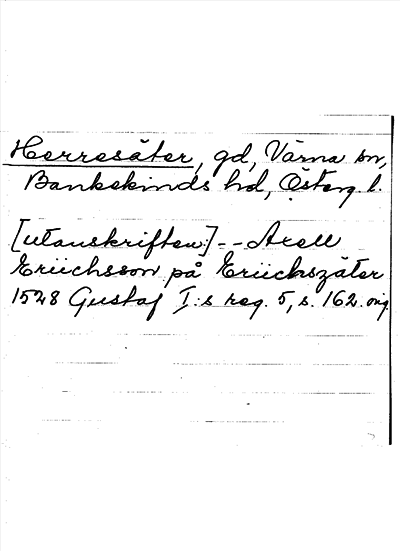 Herresäter, gd, Värna sn,
Bankekinds hd, Österg l.
[utanskriften:] -- Axell
Eriichsson på Eriichszäter
1528 Gustaf I:s reg. 5, s. 162. orig.